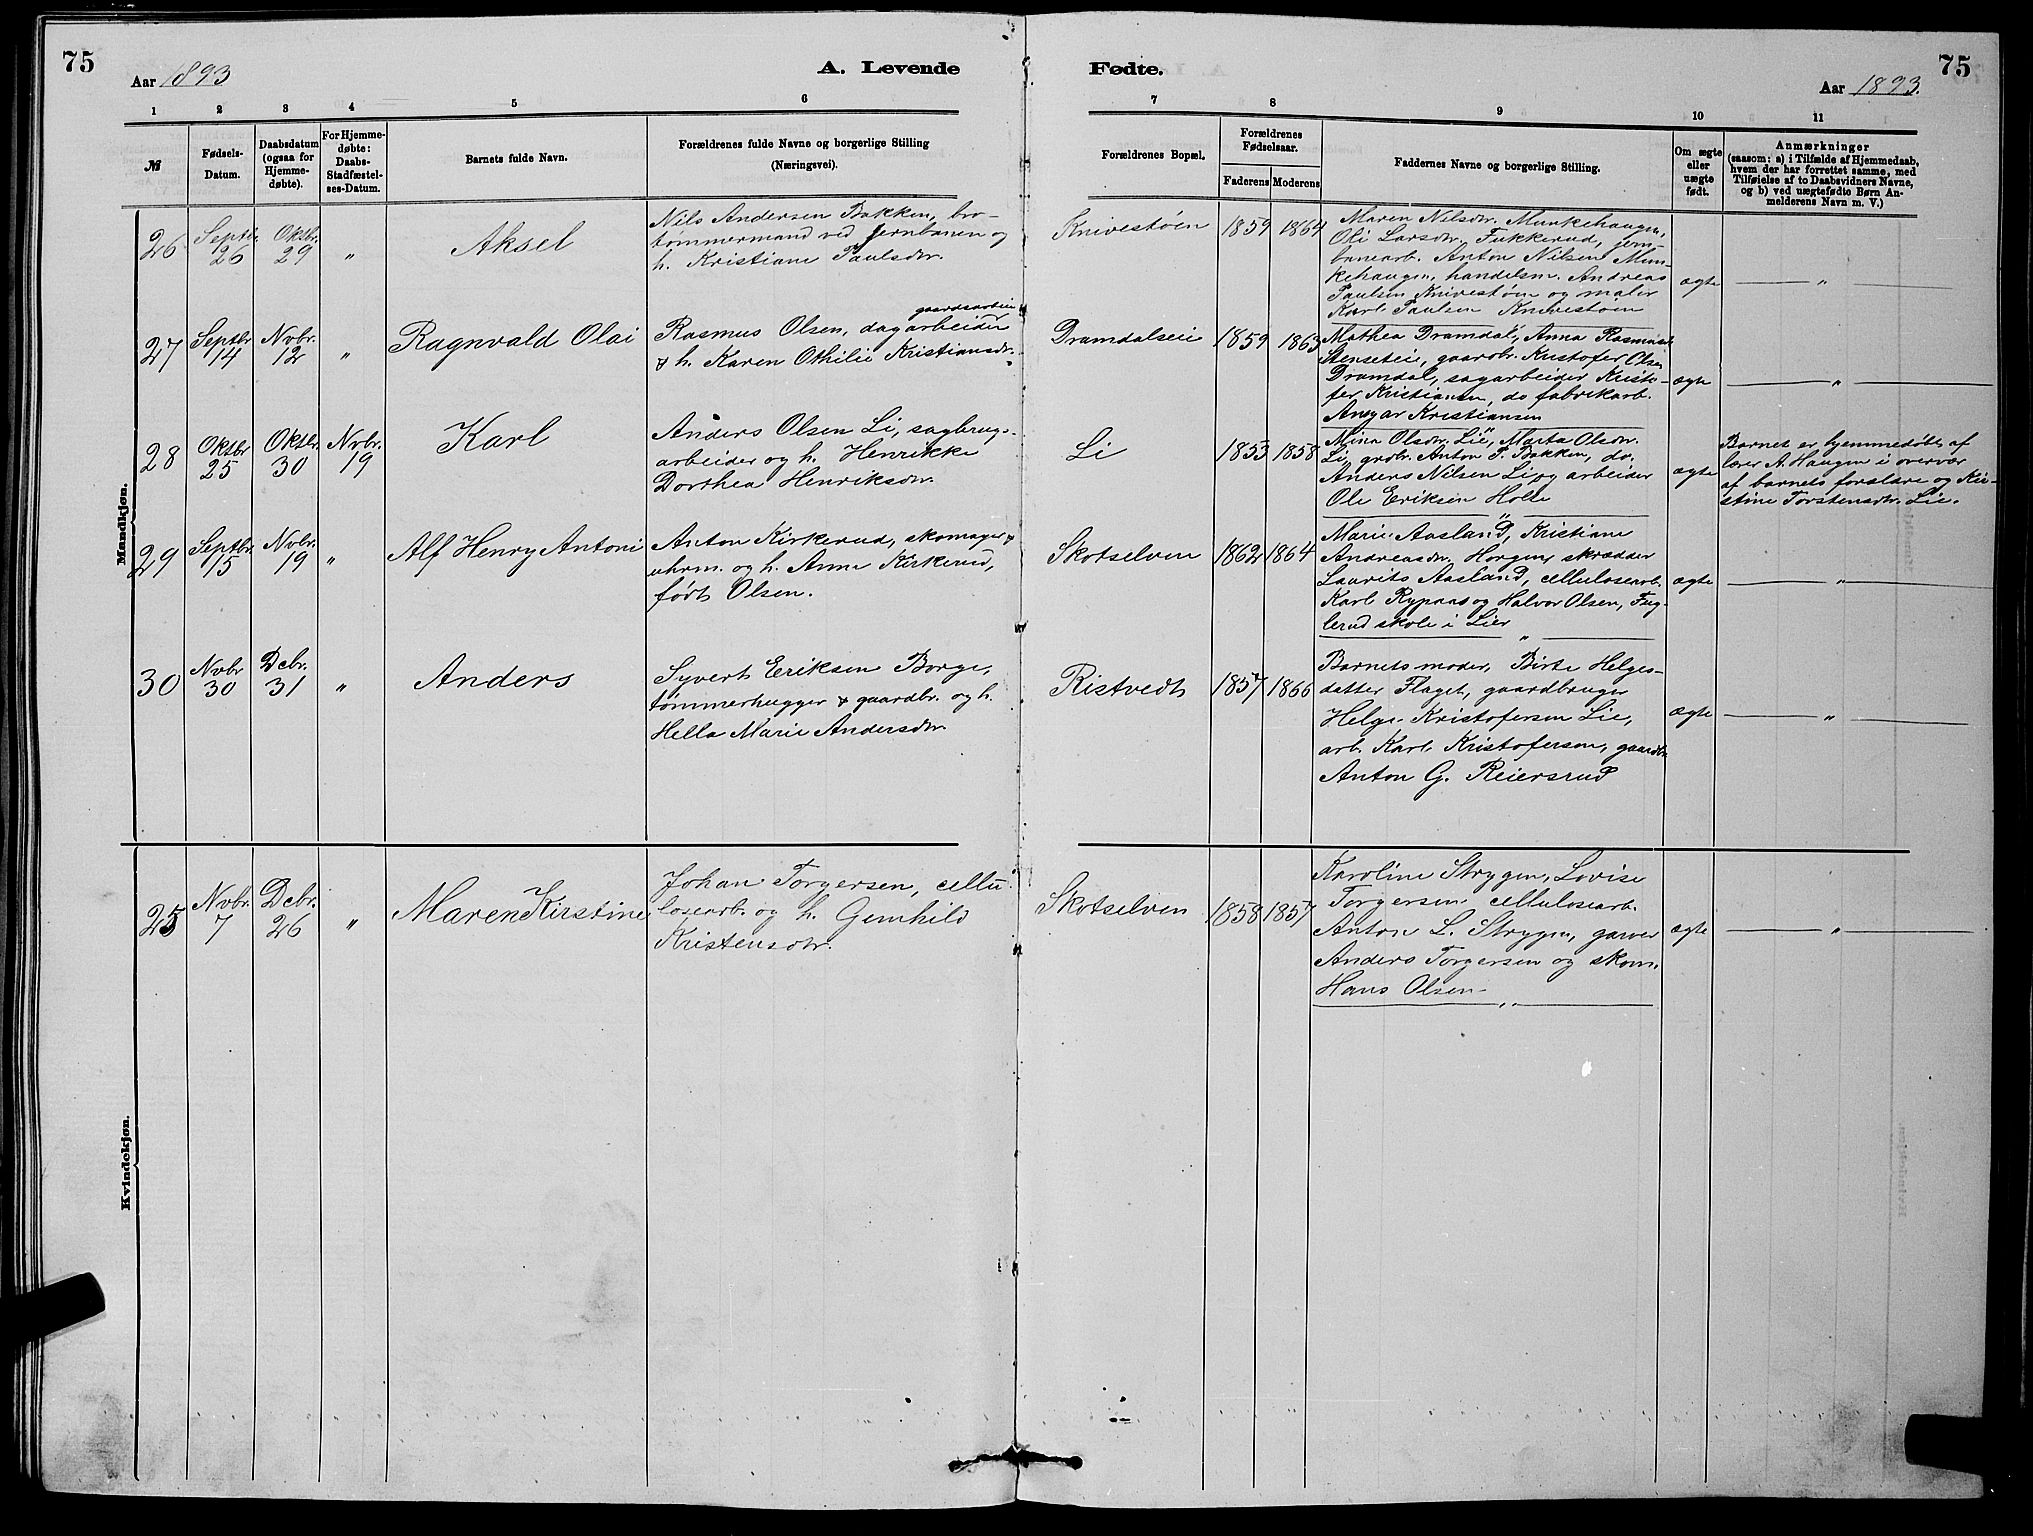 75
Aar 1893
A. Levende
1 2 3 4 5 6
№
Fødsels-
Datum.
Daabsdatum
(ogsaa for
Hjemme-
døbte).
For Hjemme-
døbte:
Daabs-
Stadfæstel-
ses-Datum.
Barnets fulde Navn.
Forældrenes fulde Navne og borgerlige Stilling
(Næringsvei).
Mandkjøn.
26
Septbr.
26
Oktbr.
29
"
Aksel
Nils Andersen Bakken, bro-
tømmermand ved jernbanen og
h. Kristiane Paulsdtr.
27
Septbr.
14
Nvbr.
12
"
Ragnvald Olai
gaardsarbeider
Rasmus Olsen, dagarbeider
& h. Karen Othilie Kristiansdtr.
28
Oktbr
25
Oktbr.
30
Nvbr.
19
Karl
Anders Olsen Li, sagbrugs-
arbeider og h. Henrikke
Dorthea Henriksdtr.
29
Septbr.
15
Nvbr.
19
"
Alf Henry Antoni
Anton Kirkerud, skomager &
uhrm. og h. Anna Kirkerud,
født Olsen.
30
Nvbr
30
Dcbr.
31
"
Anders
Syvert Eriksen Borge,
tømmerhugger & gaardbr. og h.
Hella Marie Andersdtr.
Kvindekjøn.
25
Nvbr.
7
Dcbr.
26
"
Maren Kirstine
Johan Torgersen, cellu-
losearb. og h. Gunhild
Kristensdtr.
Fødte.
75
Aar 1893.
7 8 9 10 11
Forældrenes Bopæl.
Forældrenes
Fødselsaar.
Faderens Moderens
Faddernes Navne og borgerlige Stilling.
Om ægte
eller
uægte
født.
Anmærkninger
(saasom: a) i Tilfælde af Hjemmedaab,
hvem der har forrettet samme, med
Tilføielse af to Daabsvidners Navne,
og b) ved uægtefødte Børn An-
melderens Navn m. V.)
Knivestøen
1859 1864
Maren Nilsdtr. Munkehaugen,
Oli Larsdtr. Fukkerud, jern-
banearb. Anton Nilsen Mun-
kehaugen, handelsm. Andreas
Paulsen Knivestøen og maler
Karl Paulsen Knivestøen
ægte
"
Dramdalseie
1859 1863
Mathea Dramdal, Anna Rasmusd.
Stenseteie, gaardbr. Kristofer Olsen
Dramdal, sagarbeider Kristo-
fer Kristiansen, do fabrikarb.
Ansgar Kristiansen
ægte
"
Li
1853 1858
Mina Olsdtr. Lie, Marta Olsdtr.
Li, grdbr. Anton F. Bakken, do.
Anders Nilsen Li og arbeider
Ole Eriksen Holte
"
ægte
Barnet er hjemmedøbt af
lærer A. Haugen i overvær
af barnets forældre og Kir-
stine Torstensdtr. Lie.
Skotselven
1862 1864
Marie Aasland, Kristiane
Andreasdtr. Horgen, skrædder
Laurits Aasland, cellulosearb.
Karl Rypaas og Halvor Olsen, Fug-
lerud skole i Lier
"
ægte
"
Ristvedt
1857 1866
Barnets moder, Birte Helges-
datter Flaget, gaardbruger
Helge Kristofersen Lie,
arb. Karl Kristofersen, gaardbr.
Anton G. Reiersrud
ægte
"
Skotselven
1858 1857
Karoline Strygen, Lovise
Torgersen, cellulosearb.
Anton L. Strygen, garver
Anders Torgersen og skom.
Hans Olsen
"
ægte
"